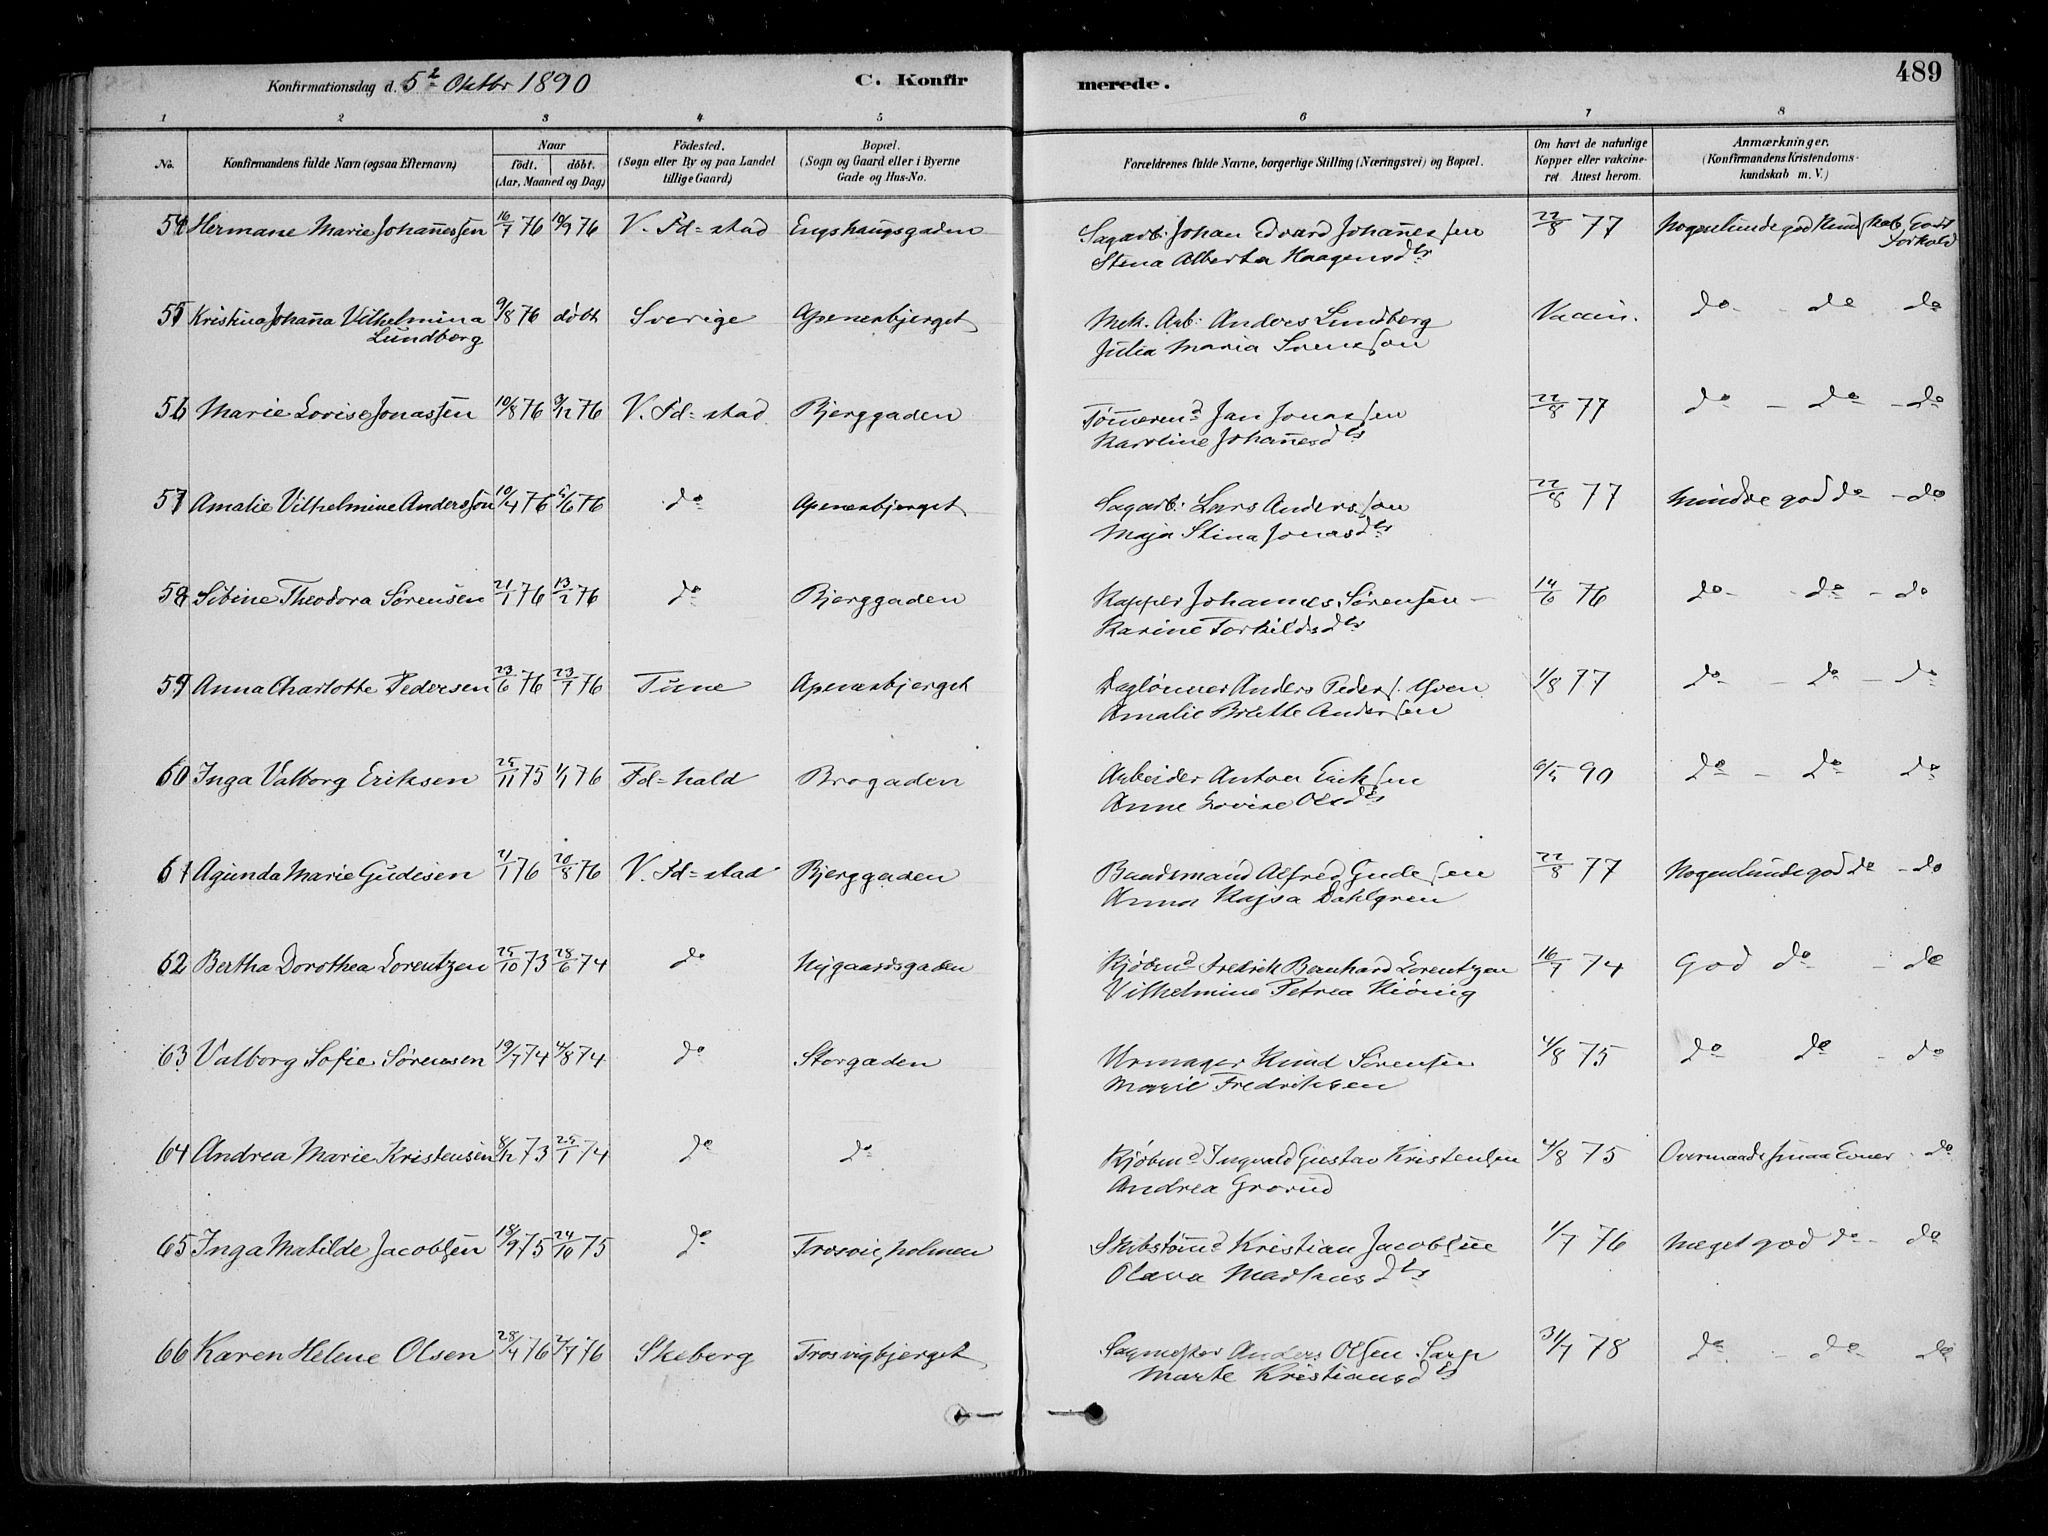 Konfirmationsdag d. 5t Oktbr 1890
C. Konfirmerede.
489
1 2 3 4 5 6 7 8
No.
Konfirmandens fulde Navn (ogsaa Efternavn)
Naar
födt. döbt.
(Aar, Maaned og Dag)
Födested.
(Sogn eller By og paa Landet
tillige Gaard)
Bopæl.
(Sogn og Gaard eller i Byerne
Gade og Hus-No.
Forældrenes fulde Navne, borgerlige Stilling (Næringsvei) og Bopæl.
Om havt de naturlige
Kopper eller vakcine-
ret. Attest herom.
Anmærkninger.
(Konfirmandens Kristendoms-
kundskab m. V.)
54 Hermane Marie Johannessen 16/7 76 10/9 76 V. Fd=stad Engshaugsgaden Sagarb: Johan Edvard Johannessen 22/8 77 Nogenlunde god Kundskab Godt
Forhold
Stina Alberta Haagensdtr
55 Kristina Johanna Vilhelmina 9/8 76 döbt Sverige Apenesbjerget Mek. Arb: Anders Lundberg Vaccin. do do do
Lundberg
Julia Maria Svensson
56 Marie Lovise Jonassen 10/8 76 9/12 76 V. Fd=stad Bjerggaden Tømmermd Jan Jonassen 22/8 77 do do do
Karoline Johannesdtr
57 Amalie Vilhelmine Andersson 10/4 76 5/6 76 do Apenesbjerget Sagarb: Lars Andersson 22/8 77 Mindre god do do
Maja Stina Jonasdtr
58 Sibine Theodora Sörensen 21/1 76 13/2 76 do Bjerggaden Kapper Johannes Sørensen 14/6 76 do do do
Karine Torkildsdtr
59 Anna Charlotte Pedersen 23/6 76 23/7 76 Tune Apenesbjerget Daglønner Anders Peders. Yven 1/8 77 do do do
Amalie Brette Andersen
60 Inga Valborg Eriksen 25/11 75 1/1 76 Fd=hald Brogaden Arbeider Anton Eriksen 6/5 90 do do do
Anne Lovise Olsdtr
61 Agunda Marie Gudesen 21/1 76 20/8 76 V. Fd=stad Bjerggaden Baadsmand Alfred Gudesen 22/8 77 Nogenlunde god do do
Anna Kajsa Dahlgren
62 Bertha Dorothea Lorentzen 25/10 73 28/6 74 do Nygaardsgaden Kjøbmd Fredrik Bernhard Lorentzen 16/7 74 God do do
Vilhelmine Petrea Kiönig
63 Valborg Sofie Sørensen 19/7 74 4/8 74 do Storgaden Urmager Knud Sørensen 4/8 75 do do do
Marie Fredriksen
64 Andrea Marie Kristensen 8/12 73 25/1 74 do do Kjøbmd Ingvald Gustav Kristensen 4/8 75 Overmaade smaa Evner do
Andrea Grorud
65 Inga Matilde Jacobsen 18/9 75 24/10 75 do Trosvigholmen Skibstømd Kristian Jacobsen 1/7 76 Meget god do do
Olava Mathisdtr
66 Karen Helene Olsen 28/4 76 2/7 76 Skeberg Trosvigbjerget Sagmester Anders Olsen Sarp 31/7 78 do do do
Marte Kristiansdtr